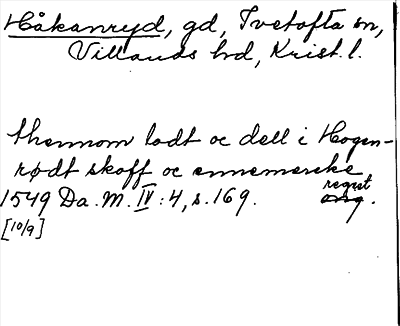 Håkanryd, gd, Ivetofta sn,
Villands hd, Krist. l.
thennom lodt oc dell i Hogen-
rødt skoff oc ennemercke
1549 Da. M. IV : 4, s. 169. regist
org.
[10/9]